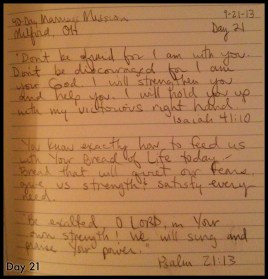 40-Day Mission
Milford, OH
9-21-13
Day 21
"Don't be afraid for I am with you.
Don't be discouraged for I am
your God. I will strengthen you
and help you. I will hold you up
with my victorious right hand.
Isaiah 41:10
You know exactly how to feed us
with Your Bread of Life today-
Bread that will quiet our fears,
give us strength & satisfy every
need.
"Be exalted, O LORD, in Your
own strength! We will sing and
praise Your power."
Psalm 21:13
Day 21